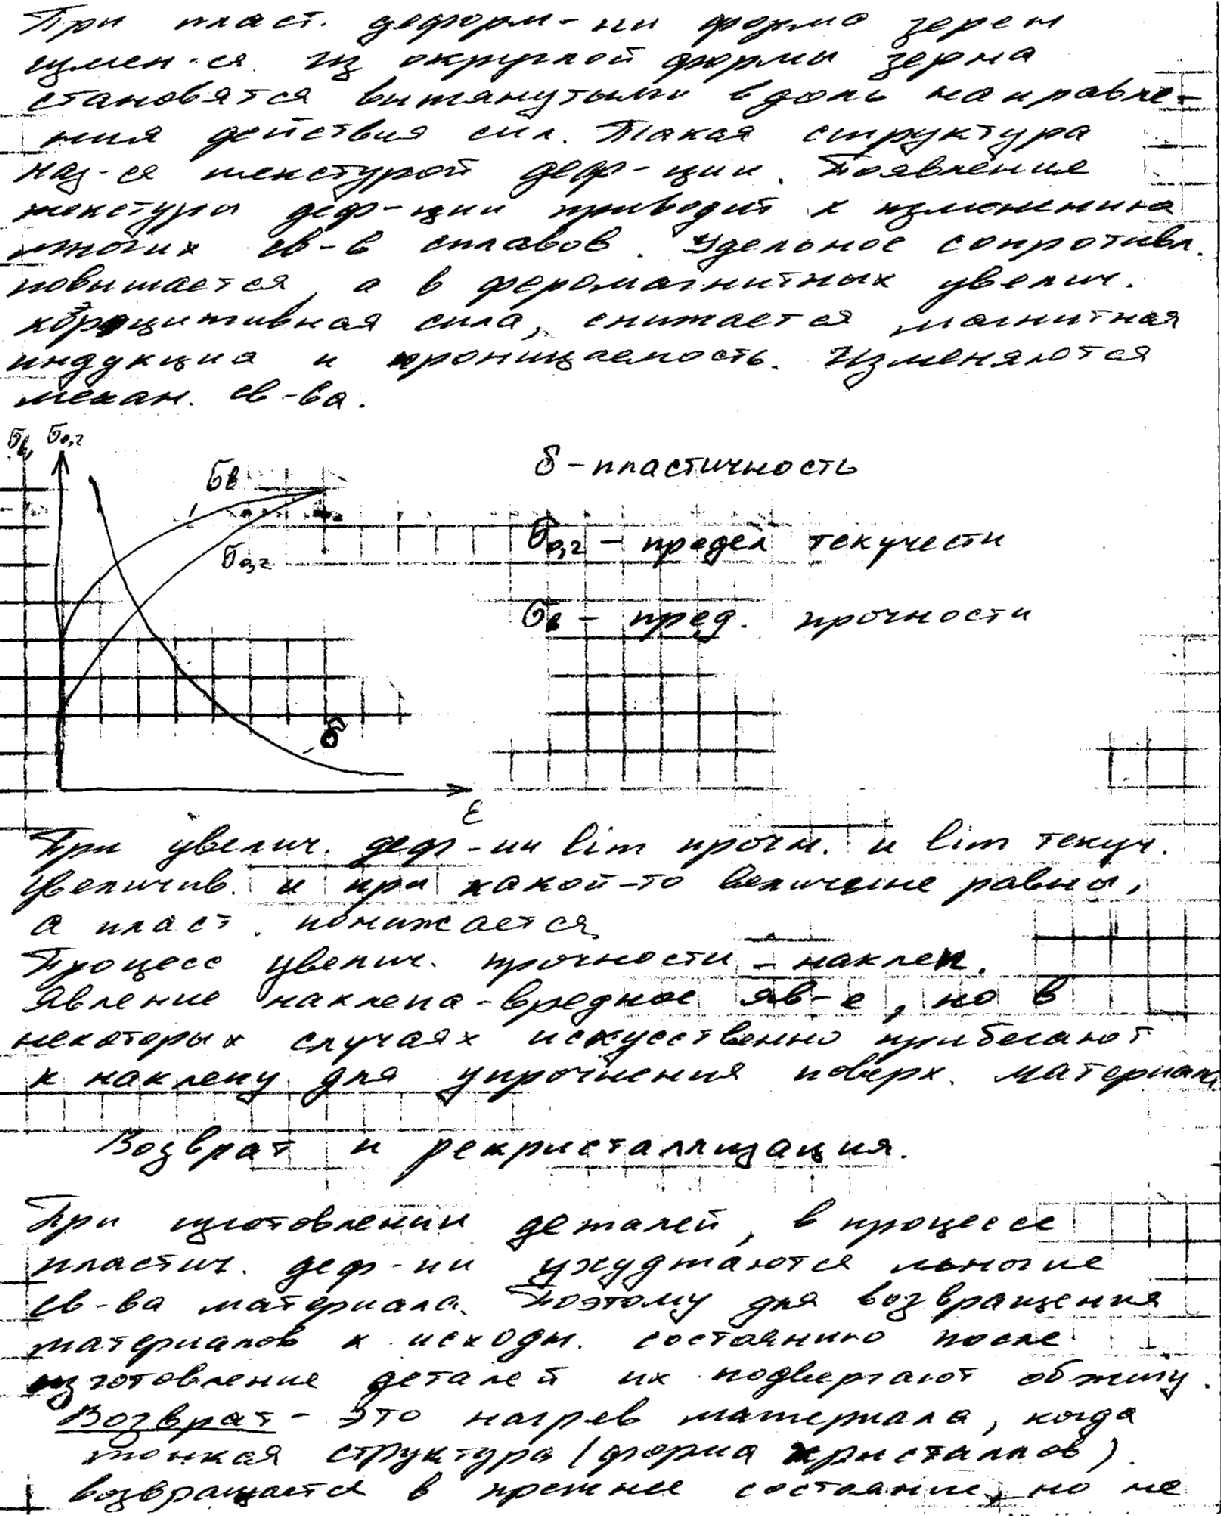 При пласт. деформ-ии форма зерен
измен-ся. Из округлой формы зерна
становятся вытянутыми вдоль направле-
ния действия сил. Такая структура
наз-ся текстурой деф-ции. Появление
текстуры деф-ции приводит к изменению
многих св-в сплавов. Удельное сопротивл.
повышается, а в феромагнитных увелич.
коэрцитивная сила, снижается магнитная
индукция и проницаемость. Изменяются
механ. св-ва.
σв, σ0,2
σв
δ - пластичность
σ0,2
σ0,2 - предел текучести
σв - пред. прочности
δ
ε
При увелич. деф-ии lim прочн. и lim текуч.
увеличив. и при какой-то величине равны,
а пласт. понижается.
Процесс увелич. прочности - наклеп.
Явление наклепа - вредное яв-е, но в
некоторых случаях искусственно прибегают
к наклепу для упрочнения поверх. материал.
Возврат и рекристаллизация.
При изготовлении деталей, в процессе
пластич. деф-ии ухудшаются многие
св-ва материала. Поэтому для возвращения
материалов к исходн. состоянию после
изготовление деталей их подвергают обжигу.
Возврат - это нагрев материала, когда
тонкая структура (форма кристаллов)
возвращается в прежнее состояние, но не